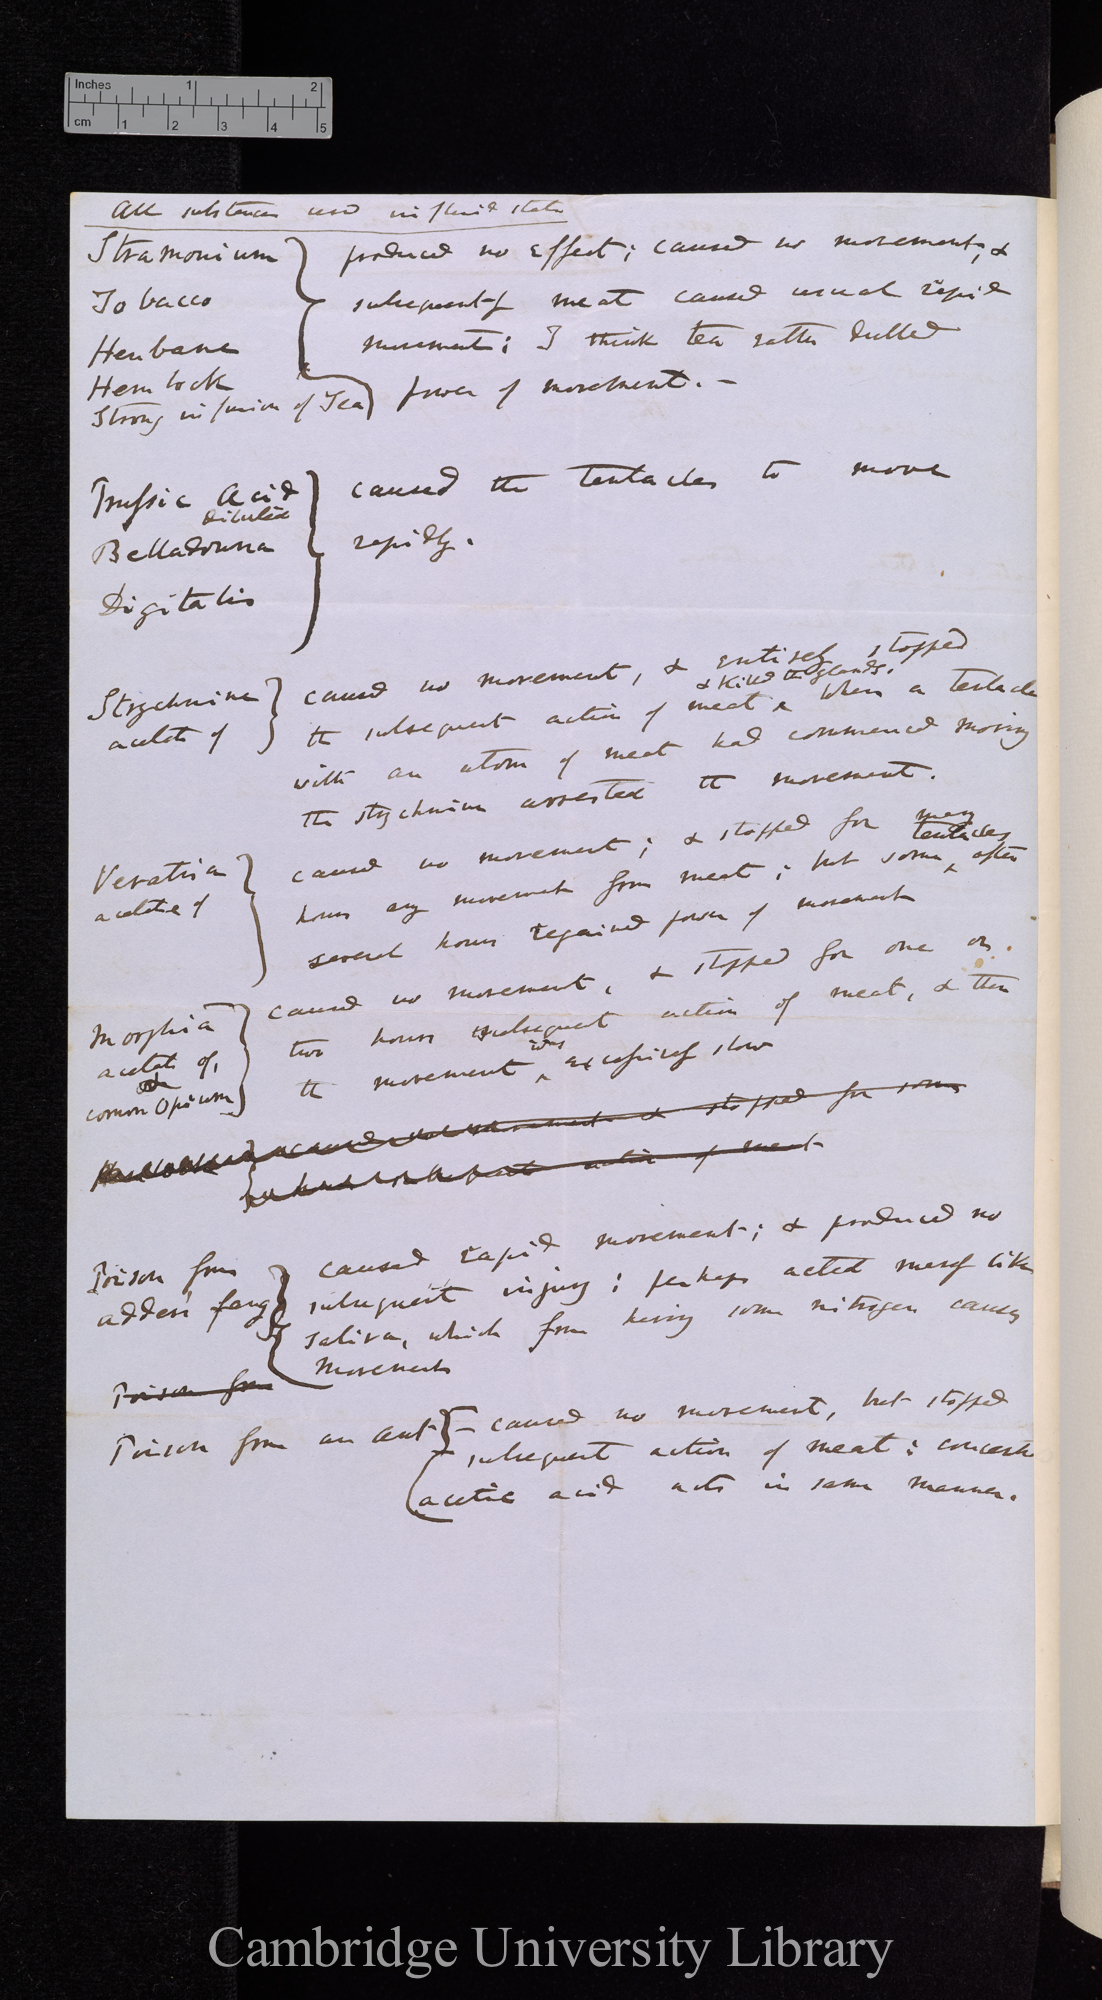 Inches 1 2
cm 1 2 3 4 5
All substances used in fluid state
Stramonium produced no effect; caused no movement, &
Tobacco subsequently meat caused usual rapid
Henbane movement; I think tea rather dulled
Hemlock power of movement. —
Strong infusion of Tea
Prussic Acid caused the tentacles to move
diluted
Belladonna rapidly.
Digitalis
Strychnine caused no movement, & entirely stopped
& killed the glands.
acetate of the subsequent action of meat When a tentacle
with an atom of meat had commenced moving
the strychnine arrested the movement.
Veratria caused no movement; & stopped for many
tentacles
acetate of hours any movement from meat; but some ^ after
several hours regained power of movement
Morphia caused no movement, & stopped for one or
acetate of, two hours subsequent action of meat, & then
was
common Opium the movement ^ excessively slow
caused movement & stopped for some
action of meat
Poison from caused rapid movement; & produced no
adder's fang subsequent injury; perhaps acted merely like
saliva, which from having some nitrogen causes
movement
Poison from
Poison from an ant — caused no movement, but stopped
subsequent action of meat;
acetic acid acts in same manner.
Cambridge University Library